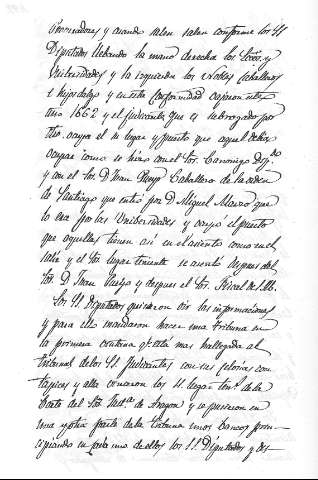 Procuradores y cuando salen salen conforme los SS
Diputados llebando la mano derecha los Sres. y
Universidades y la izquierda los Nobles Caballeros
e hijosdalgo y en esta conformidad cajeron este
año 1662 y el Judicante que es subrogado por
otro, ocupa el lugar y puesto que aquel debia
ocupar como se hizo con el Sor. Canonigo
y con el Sor. D. Juan Caballero de la orden
de Santiago que entró por D. Miguel Marco que
lo era por las Universidades y ocupó el puesto
que aquellas tienen asi en el asiento como en el
salir y el Sor. lugarteniente se asento despues del
Sor. D. Juan y despues el Sor. Fiscal de S.M.
Los SS. Diputados quisieron oir las informaciones
y para ello mandaron hacer una Tribuna en
la primera ventana qe. está mas hallegada al
tribunal de los SS. Judicantes con sus celosias con
tapices y alla oyeron los SS. lugar tens. de la
Corte del Sor. Justa. de Aragon y se pusieron en
una y otra parte de la tribuna unos bancos prin-
cipiando en cada uno de ellos los SS. Diputados y des-